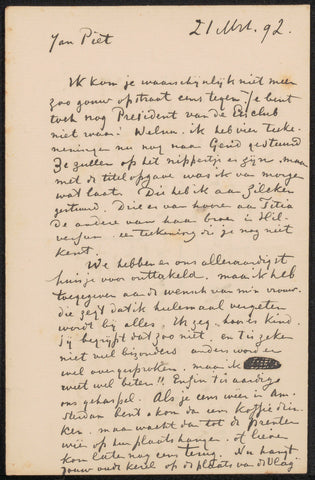 Jan Piet 21 Mrt. 92.
Ik kom je waarschijnlijk niet meer
zoo gauw op straat eens tegen. Je bent
toch nog President van de Etsclub
niet waar? Welnu. ik heb vier teeke-
neningen nu nog naar Gend gestuurd
Ze zullen op het nippertje er zijn, maar
met de titelopgave was ik van morgen
wat laat. Die heb ik aan Zilcken
gestuurd. Drie er van hooren aan Titia
De andere van haar broer in Hil-
versum. een teekening die je nog niet
kent.
We hebben er ons alleraardigst
huisje voor onttakeld. maar ik heb
toegegeven aan de wensch van m'n vrouw.
die zegt dat ik heelemaal vergeten
wordt bij alles. ik zeg, hoor es kind.
jij begrijpt dat zoo niet. en 't is zeker
niet veel bijzonders anders word er
wel over gesproken. maar ik
weet wel beter!! Enfin 't is aardig
ons gehaspel. Als je eens weer in Am-
sterdam bent, kom dan een koffie drin-
ken. maar wacht dan tot de prenten
weer op hun plaats hangen. of liever
kom later nog eens terug. Nu hangt
jouw oude kerel op de plaats van de Vlag